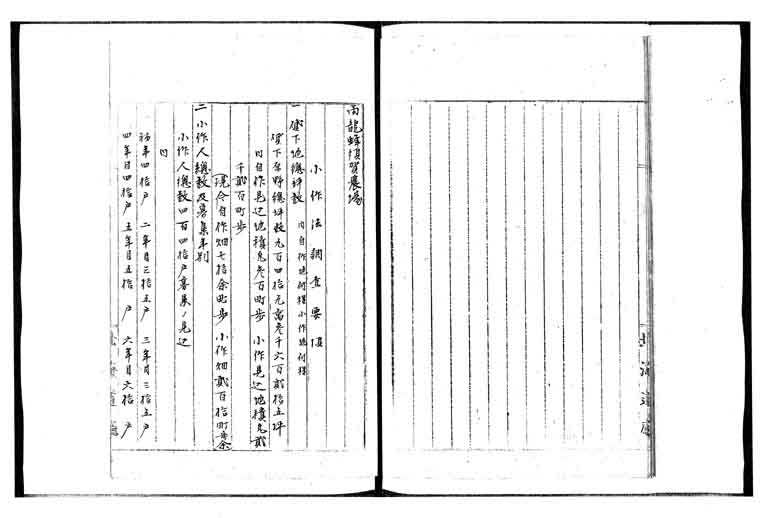 雨龍蜂須賀農場
小作法調査要項
一 貸下地總坪数 内自作地何程小作地何程
貸下原野總坪数九百四拾九萬参千六百貳拾五坪
内自作見込地積凡参百町歩 小作見込地積凡貳
千貳百町歩
現今自作畑七拾余町歩 小作畑貳百拾町歩余
二 小作人總数及募集年別
小作人總数四百四拾戸募集ノ見込
内
初年四拾戸 二年目三拾五戸 三年目三拾五戸
四年目四拾戸 五年目五拾戸 六年目六拾戸
北海道廳
北海道廳